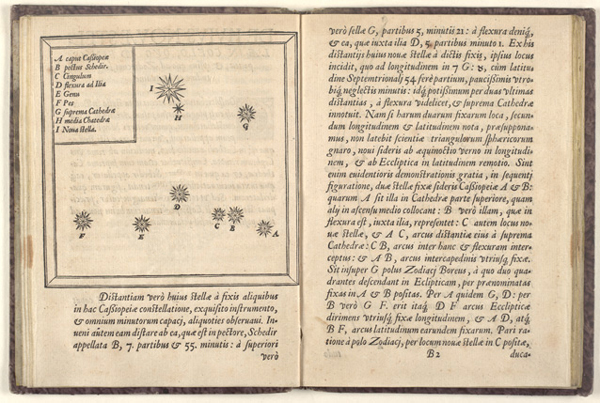 A caput Caßiopeæ
B pectus Schedir.
C Cingulum
D flexura ad Ilia
E Genu
F Pes
G suprema Cathedræ
H media Chatedræ
I Nova stella.
I
H
G
D
C
B
F
E
A
Distantiam verò huius stellæ à fixis aliquibus
in hac Caßiopeiæ constellatione, exquisito instrumento,
& omnium minutorum capacj, aliquoties obseruaui. In-
ueni aũtem eam distare ab ea, quæ est in pectore, Schedir
appellata B, 7. partibus & 55. minutis: à superiori
verò
verò stella G, partibus 5, minutis 21: à flexura deniq́;
& ea, quæ iuxta ilia D, 5, partibus minuto 1. Ex his
distantijs huius nouæ stellæ à dictis fixis, ipsius locus
incidit, quo ad longitudinem in 7 G: ♉, cùm latitu-
dine Septemtrionalj 54 ferè partium, paucißimis vtro-
biq́; neglectis minutis: idq́; potißimùm per duas vltimas
distantias, à flexura videlicet, & suprema Cathedræ
innotuit. Nam si harum duarum fixarum loca, secun-
dum longitudinem & latitudinem nota, præsuppona-
mus, non latebit scientiæ triangulorum sphæricorum
gnaro, noui sideris ab æquinoctio verno in longitudi-
nem, & ab Ecclipticà in latitudinem remotio. Sint
enim euidentioris demonstrationis gratia, in sequentj
figuratione, duæ stellæ fixæ sideris Caßiopeiæ A & B:
quarum A sit illa in Cathedræ parte superiore, quam
alij in ascensu medio collocant: B verò illam, quæ in
flexura est, iuxta ilia, repræsentet: C autem locus no-
uæ stellæ, & A C, arcus distantiæ eius à suprema
Cathedræ: C B, arcus inter hanc & flexuram inter-
ceptus: & A B, arcus intercapedinis vtriusq́; fixæ.
Sit insuper G polus Zodiacj Boreus, à quo duo qua-
drantes descendant in Eclipticam, per prænominatas
fixas in A & B positas. Per A quidem G, D: per
B verò G F. erit itaq́; D F arcus Eclipticæ
dirimens vtriusq́; fixæ longitudinem, & A D, atq́;
B F, arcus latitudinum earundem fixarum. Pari ra-
tione à polo Zodiacj, per locum nouæ stellæ in C positæ,
B2
duca-